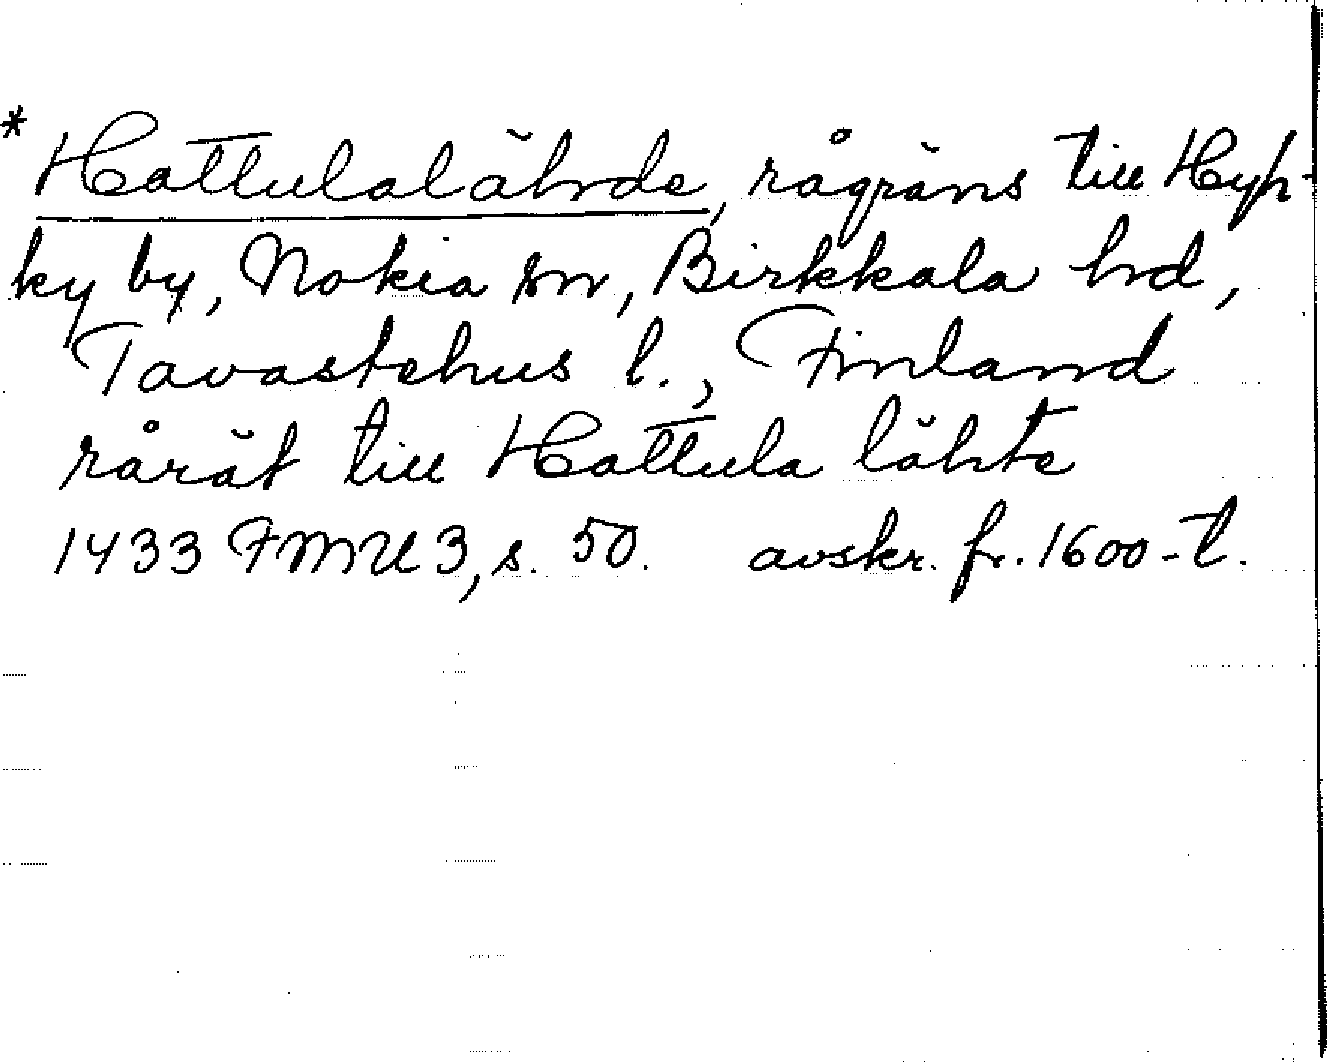 * Hattulalähde, rågräns till Hyh-
ky by, Nokia sn, Birkkala hd,
Tavastehus l., Finland
rårät till Hattula lähte
1433 FMU 3, s. 50. avskr. fr. 1600-t.